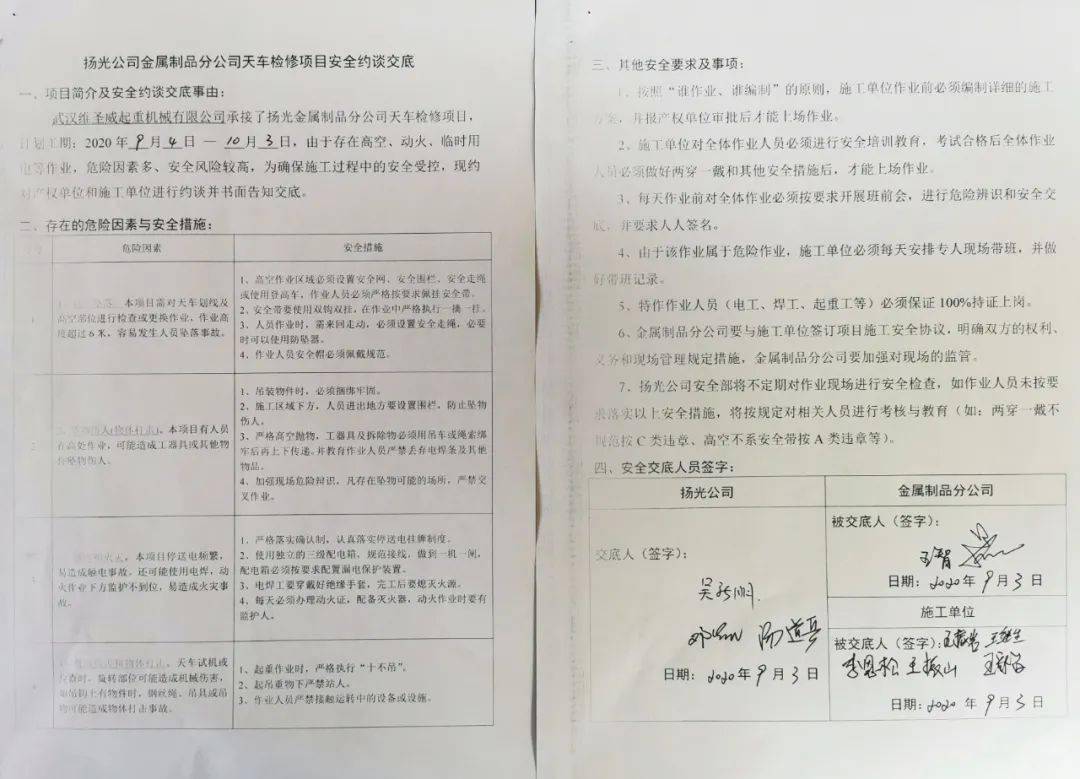 扬光公司金属制品分公司天车检修项目安全约谈交底
一、项目简介及安全约谈交底事由：
武汉维圣威起重机械有限公司承接了扬光金属制品分公司天车检修项目，
计划工期：2020年9月4日 — 10月3日，由于存在高空、动火、临时用
电等作业，危险因素多、安全风险较高，为确保施工过程中的安全受控，现约
对产权单位和施工单位进行约谈并书面告知交底。
二、存在的危险因素与安全措施：
危险因素
安全措施
本项目需对天车划线及
高空部位进行检查或更换作业，作业高
度超过6米，容易发生人员坠落事故。
1、高空作业区域必须设置安全网、安全围栏、安全走绳
或使用登高车，作业人员必须严格按要求佩挂安全带。
2、安全带要使用双钩双挂，在作业中严格执行一摘一挂。
3、人员作业时，需来回走动，必须设置安全走绳，必要
时可以使用防坠器。
4、作业人员安全帽必须佩戴规范。
2
伤人(物体打击)。本项目有人员
在高处作业，可能造成工器具或其他物
件坠物伤人。
1、吊装物件时，必须捆绑牢固。
2、施工区域下方，人员进出地方要设置围栏，防止坠物
伤人。
3、严格高空抛物，工器具及拆除物必须用吊车或绳索绑
牢后再上下传递。并教育作业人员严禁丢弃电焊条及其他
物品。
4、加强现场危险辩识，凡存在坠物可能的场所，严禁交
叉作业。
本项目停送电频繁，
易造成触电事故。还可能使用电焊，动
火作业下方监护不到位，易造成火灾事
故。
1、严格落实确认制，认真落实停送电挂牌制度。
2、使用独立的三级配电箱，规范接线，做到一机一闸，
配电箱必须按要求配置漏电保护装置。
3、电焊工要穿戴好绝缘手套，完工后要熄灭火源。
4、每天必须办理动火证，配备灭火器，动火作业时要有
监护人。
物体打击。天车试机或
检查时，旋转部位可能造成机械伤害，
如吊钩上有物件时，钢丝绳、吊具或吊
物可能造成物体打击事故。
1、起重作业时，严格执行“十不吊”。
2、起吊重物下严禁站人。
3、作业人员严禁接触运转中的设备或设施。
三、其他安全要求及事项：
1、按照“谁作业、谁编制”的原则，施工单位作业前必须编制详细的施工
方案，并报产权单位审批后才能上场作业。
2、施工单位对全体作业人员必须进行安全培训教育，考试合格后全体作业
人员必须做好两穿一戴和其他安全措施后，才能上场作业。
3、每天作业前对全体作业必须按要求开展班前会，进行危险辨识和安全交
底，并要求人人签名。
4、由于该作业属于危险作业，施工单位必须每天安排专人现场带班，并做
好带班记录。
5、特作作业人员（电工、焊工、起重工等）必须保证100%持证上岗。
6、金属制品分公司要与施工单位签订项目施工安全协议，明确双方的权利、
义务和现场管理规定措施，金属制品分公司要加强对现场的监管。
7、扬光公司安全部将不定期对作业现场进行安全检查，如作业人员未按要
求落实以上安全措施，将按规定对相关人员进行考核与教育（如：两穿一戴不
规范按C类违章、高空不系安全带按A类违章等）。
四、安全交底人员签字：
扬光公司
金属制品分公司
交底人（签字）：
汤道兵
日期：2020年9月3日
被交底人（签字）：
王智
日期：2020年9月3日
施工单位
被交底人（签字）：
李恩松 王振山
日期：2020年9月3日